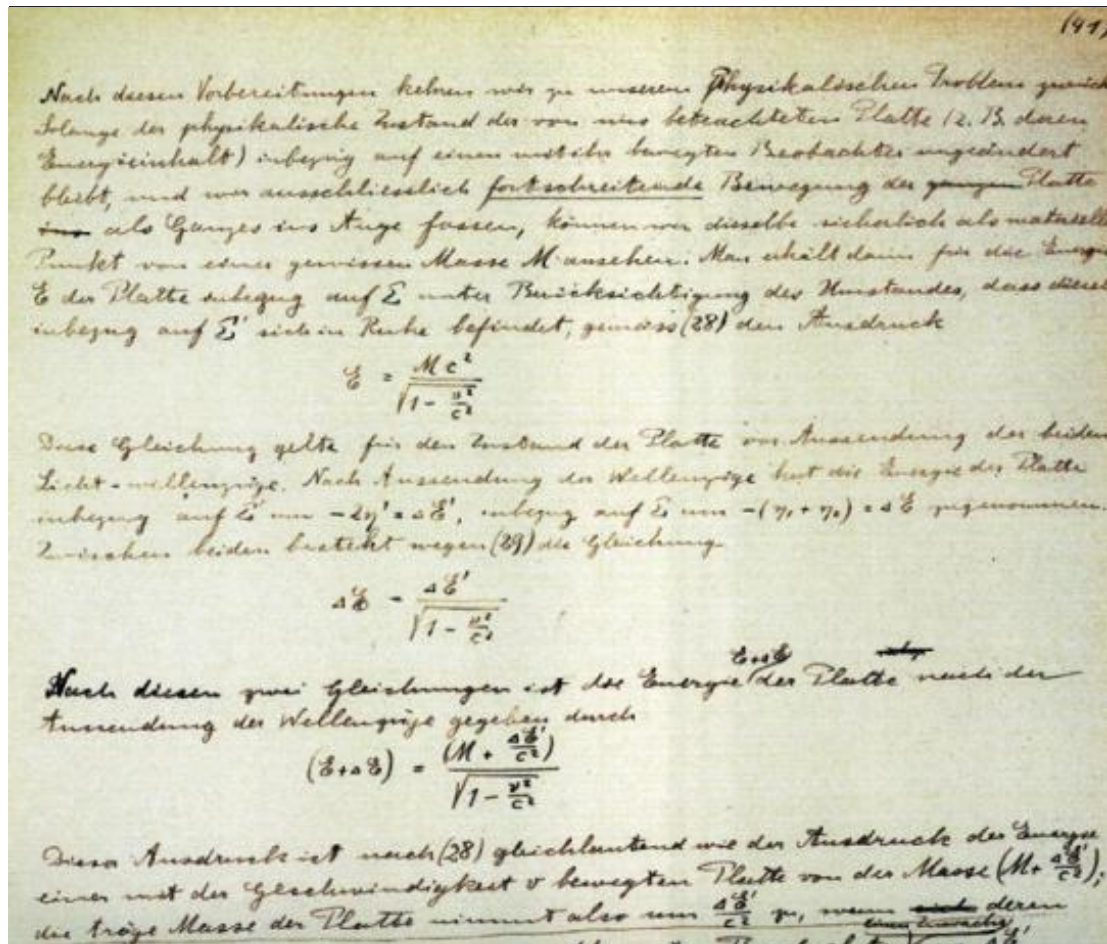 (41)
Nach diesen Vorbereitungen kehren wir zu unserem physikalischen Problem zurück
Solange der physikalische Zustand der von uns betrachteten Platte (z. B. deren
Energieinhalt) inbezug auf einen mit ihr bewegten Beobachter ungeändert
bleibt, und wir ausschliesslich fortschreitende Bewegung der ganzen Platte
ins als Ganzes ins Auge fassen, können wir dieselbe sicherlich als materielle
Punkt von einer gewissen Masse M ansehen. Man erhält dann für die Energie
E der Platte inbezug auf Σ unter Berücksichtigung des Umstandes, dass diese
inbezug auf Σ' sich in Ruhe befindet, gemäss (28) den Ausdruck
E = Mc² / √(1 - v²/c²)
Diese Gleichung gelte für den Zustand der Platte vor Aussendung der beiden
Licht-wellenzüge. Nach Aussendung der Wellenzüge hat die Energie der Platte
inbezug auf Σ' um -2η' = ΔE', inbezug auf Σ um -(η₁ + η₂) = ΔE zugenommen.
Zwischen beiden besteht wegen (29) die Gleichung
ΔE = ΔE' / √(1 - v²/c²)
Nach diesen zwei Gleichungen ist die Energie E+ΔE der Platte nach der
Aussendung der Wellenzüge gegeben durch
(E+ΔE) = (M + ΔE'/c²) / √(1 - v²/c²)
Dieser Ausdruck ist nach (28) gleichlautend wie der Ausdruck der Energie
einer mit der Geschwindigkeit v bewegten Platte von der Masse (M + ΔE'/c²);
die träge Masse der Platte nimmt also um ΔE'/c² zu, wenn sich deren